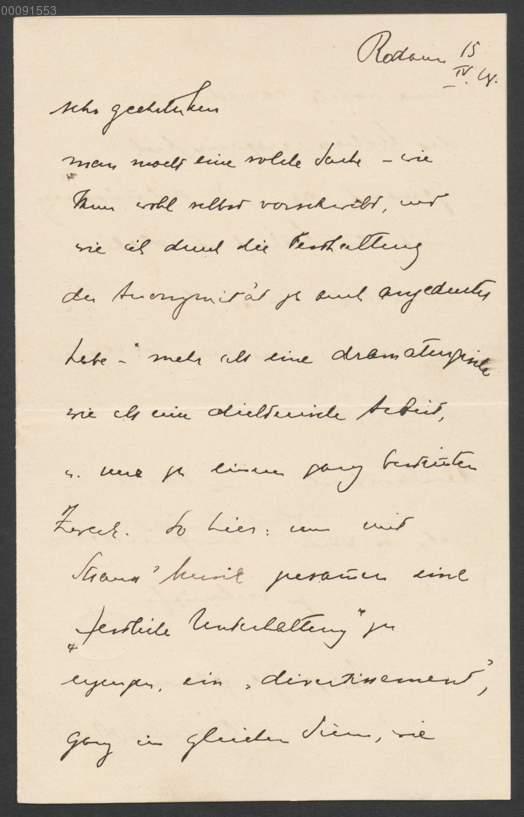 00091553
Rodaun 15
IV.
sehr geehrter
man macht eine solche Sache – wie
Ihnen wohl selbst vorschwebt, und
wie ich durch die Festhaltung
der Anonymität ja auch angedeutet
habe – mehr als eine dramaturgische
wie als eine dichterische Arbeit,
u. nur zu einem ganz bestimmten
Zweck. So hier: um mit
Strauss' Musik zusammen eine
„festliche Unterhaltung" zu
erzeugen, ein „divertissement",
ganz im gleichen Sinn, wie